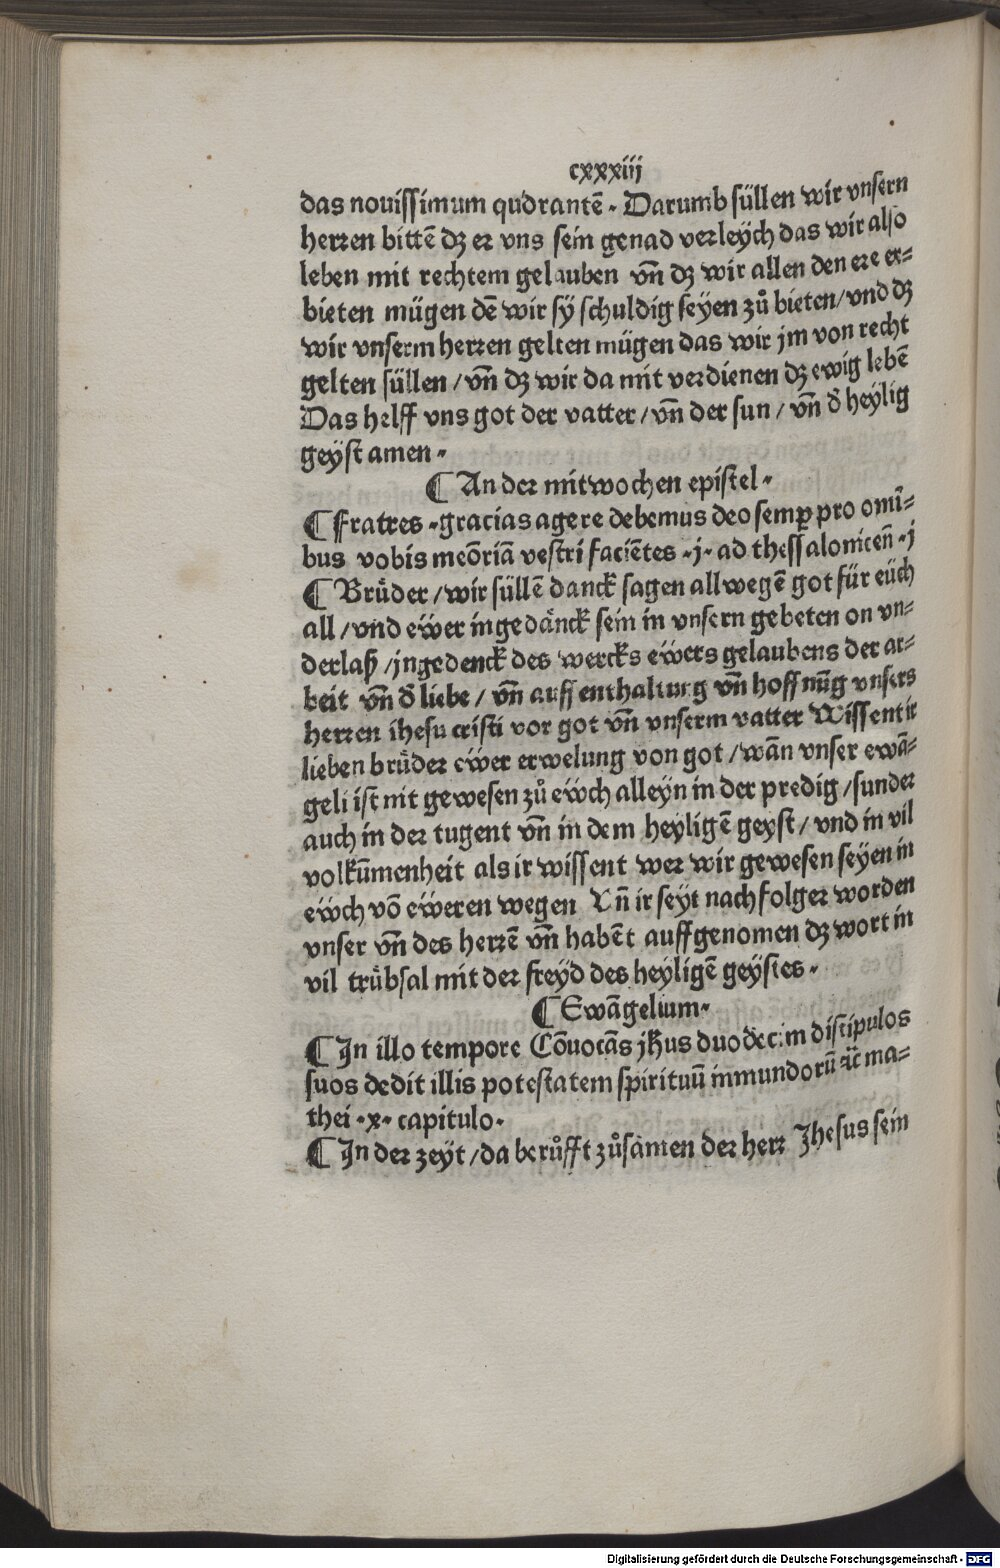 cxxxiii
das nouissimum qudrantē. Darumb süllen wir vnsern
herren bittē dz er vns sein genad verleÿch das wir also
leben mit rechtem gelauben vn̄ dz wir allen den ere er⸗
bieten mügen dē wir sÿ schuldig seÿen zů bieten/vnd dz
wir vnserm herren gelten mügen das wir jm von recht
gelten süllen/vn̄ dz wir da mit verdienen dz ewig lebē
Das helff vns got der vatter/vn̄ der sun/vn̄ d̄ heÿlig
geÿst amen.
¶ An der mitwochen epistel.
¶ Fratres.gracias agere debemus deo semꝑ pro omī⸗
bus vobis meōriā vestri faciētes.j.ad thessalonicen̄.j
¶ Brůder/wir süllē danck sagen allwegē got für eüch
all/vnd eẅer ingedånck sein in vnsern gebeten on vn⸗
derlaß/jngedenck des wercks eẅers gelaubens der ar⸗
beit vn̄ d̄ liebe/vn̄ auffenthaltung vn̄ hoffnūg vnsers
herren ihesu cristi vor got vn̄ vnserm vatter Wissent ir
lieben brůder eẅer erwelung von got/wān vnser ewā⸗
geli ist nit gewesen zů eẅch alleÿn in der predig/sunder
auch in der tugent vn̄ in dem heyligē geyst/vnd in vil
volkūmenheit als ir wissent wer wir gewesen seÿen in
eẅch vō eẅeren wegen Vn̄ ir seyt nachfolger worden
vnser vn̄ des herrē vn̄ habēt auffgenomen dz wort in
vil trůbsal mit der freÿd des heyligē geÿstes.
¶ Ewāgelium.
¶ In illo tempore Cōuocās jhus duodecim discipulos
suos dedit illis potestatem spirituū inmundorū ꝛc̄ ma⸗
thei.x.capitulo.
¶ In der zeÿt/da berůfft zůsamen der herr Jhesus sein
Digitalisierung gefördert durch die Deutsche Forschungsgemeinschaft - DFG